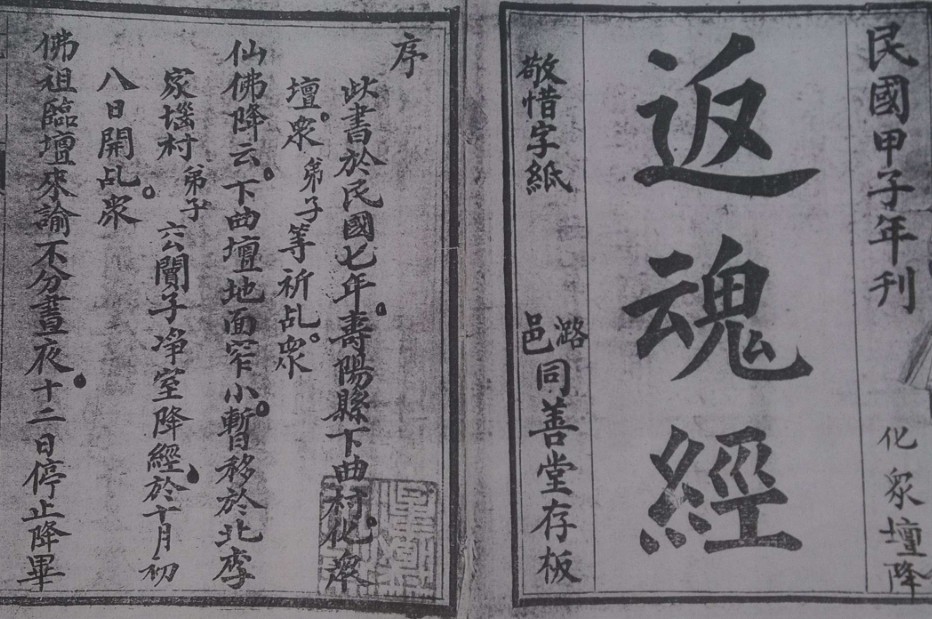 民國甲子年刊 化眾壇降
返魂經
敬惜字紙 潞邑同善堂存板
序
此書於民國七年。壽陽縣下曲村。化眾
壇眾。弟子等祈乩。眾
仙佛降云。下曲壇地面窄小。暫移於北李
家墕村弟子 公閆子淨室降經。於十月初
八日開乩。眾
佛祖臨壇來諭不分晝夜。十二日停止降畢